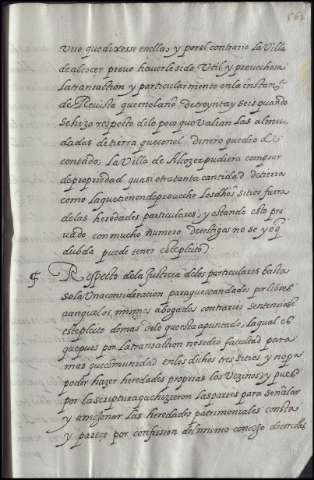 Uno que dixesse en ellas y por el contrario La Villa
de alcocer provo haverle sido Util y provechosa
La transaction y particularmente en la instanᵃ
de Revista que en el año de treynta y seis quando
se hizo respecto de lo poco que valian Las almu
dadas de tierra que con el dinero que dio de
contado La Villa de Alcozer pudiera comprar
de propriedad quasi otra tanta cantidad de tierra
como La que tienen de provecho Los dhos sitios fuera
de las heredades particulares y estando esto pro
vado con mucho numero de testigos no se yo q
dubda puede tener este pleyto
Respecto de la Justicia de los particulares basta
sola Una consideracion para que sean dados por libres
aunque los mismos abogados contrarios sentencien
este pleyto demas de lo que esta apuntado La qual es
que pues por La transaction no se dio facultad para
mas que comunidad en los dichos tres sitios y no pa
poder hazer heredades proprias Los Vezinos y pues
por la scriptura que hizieron Las partes para señalar
y amojonar Las heredades patrimoniales consta
y parece por confession del mismo concejo de